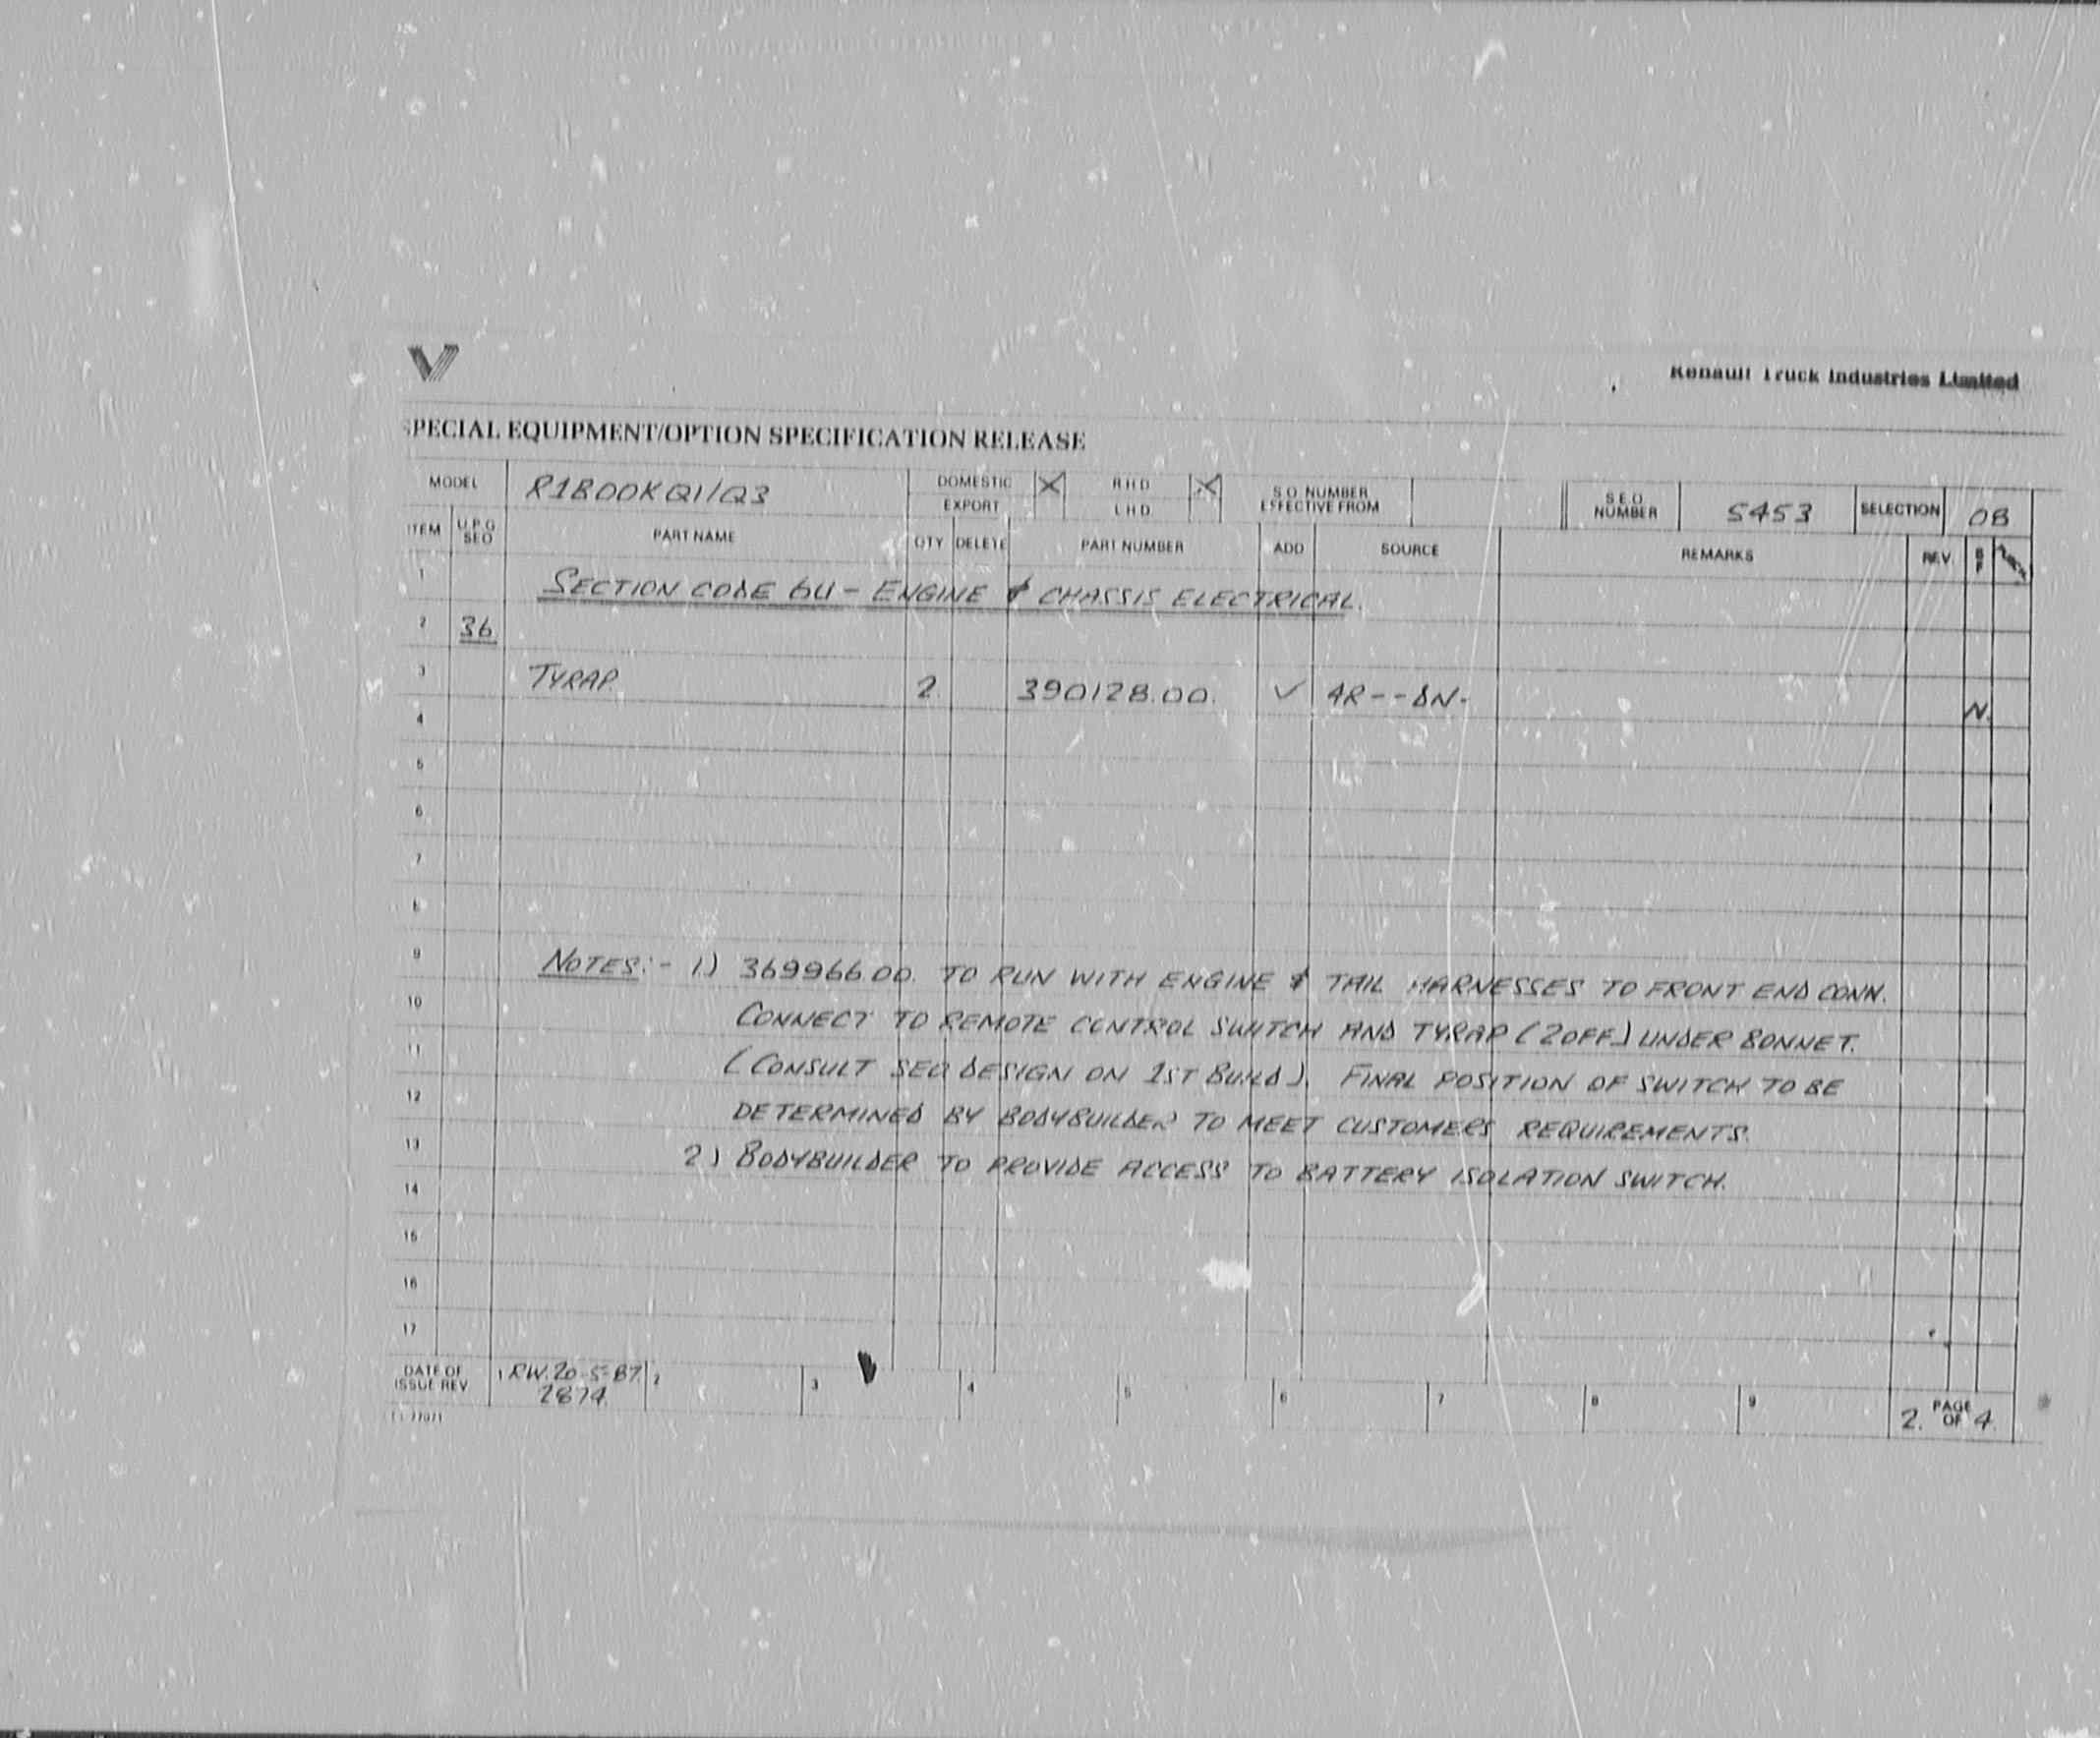 Renault Truck Industries Limited
SPECIAL EQUIPMENT/OPTION SPECIFICATION RELEASE
MODEL R1800KQ1/Q3 DOMESTIC X RHD X S.O. NUMBER S.E.O. 5453 SELECTION 08
EXPORT LHD EFFECTIVE FROM NUMBER
ITEM U.P.G SEO PART NAME QTY DELETE PART NUMBER ADD SOURCE REMARKS REV
1 SECTION CODE 6U - ENGINE & CHASSIS ELECTRICAL.
2 36
3 TYRAP. 2 390128.00. ✓ AR--DN- N.
4
5
6
7
8
9 NOTES:- 1.) 369966.00. TO RUN WITH ENGINE & TAIL HARNESSES TO FRONT END CONN.
10 CONNECT TO REMOTE CONTROL SWITCH AND TYRAP (2OFF) UNDER BONNET.
11 (CONSULT SEO DESIGN ON 1ST BUILD). FINAL POSITION OF SWITCH TO BE
12 DETERMINED BY BODYBUILDER TO MEET CUSTOMERS REQUIREMENTS.
13 2) BODYBUILDER TO PROVIDE ACCESS TO BATTERY ISOLATION SWITCH.
14
15
16
17
DATE OF 1 RW. 20-5-87. 2 3 4 5 6 7 8 9 2. PAGE OF 4.
ISSUE REV 2874.